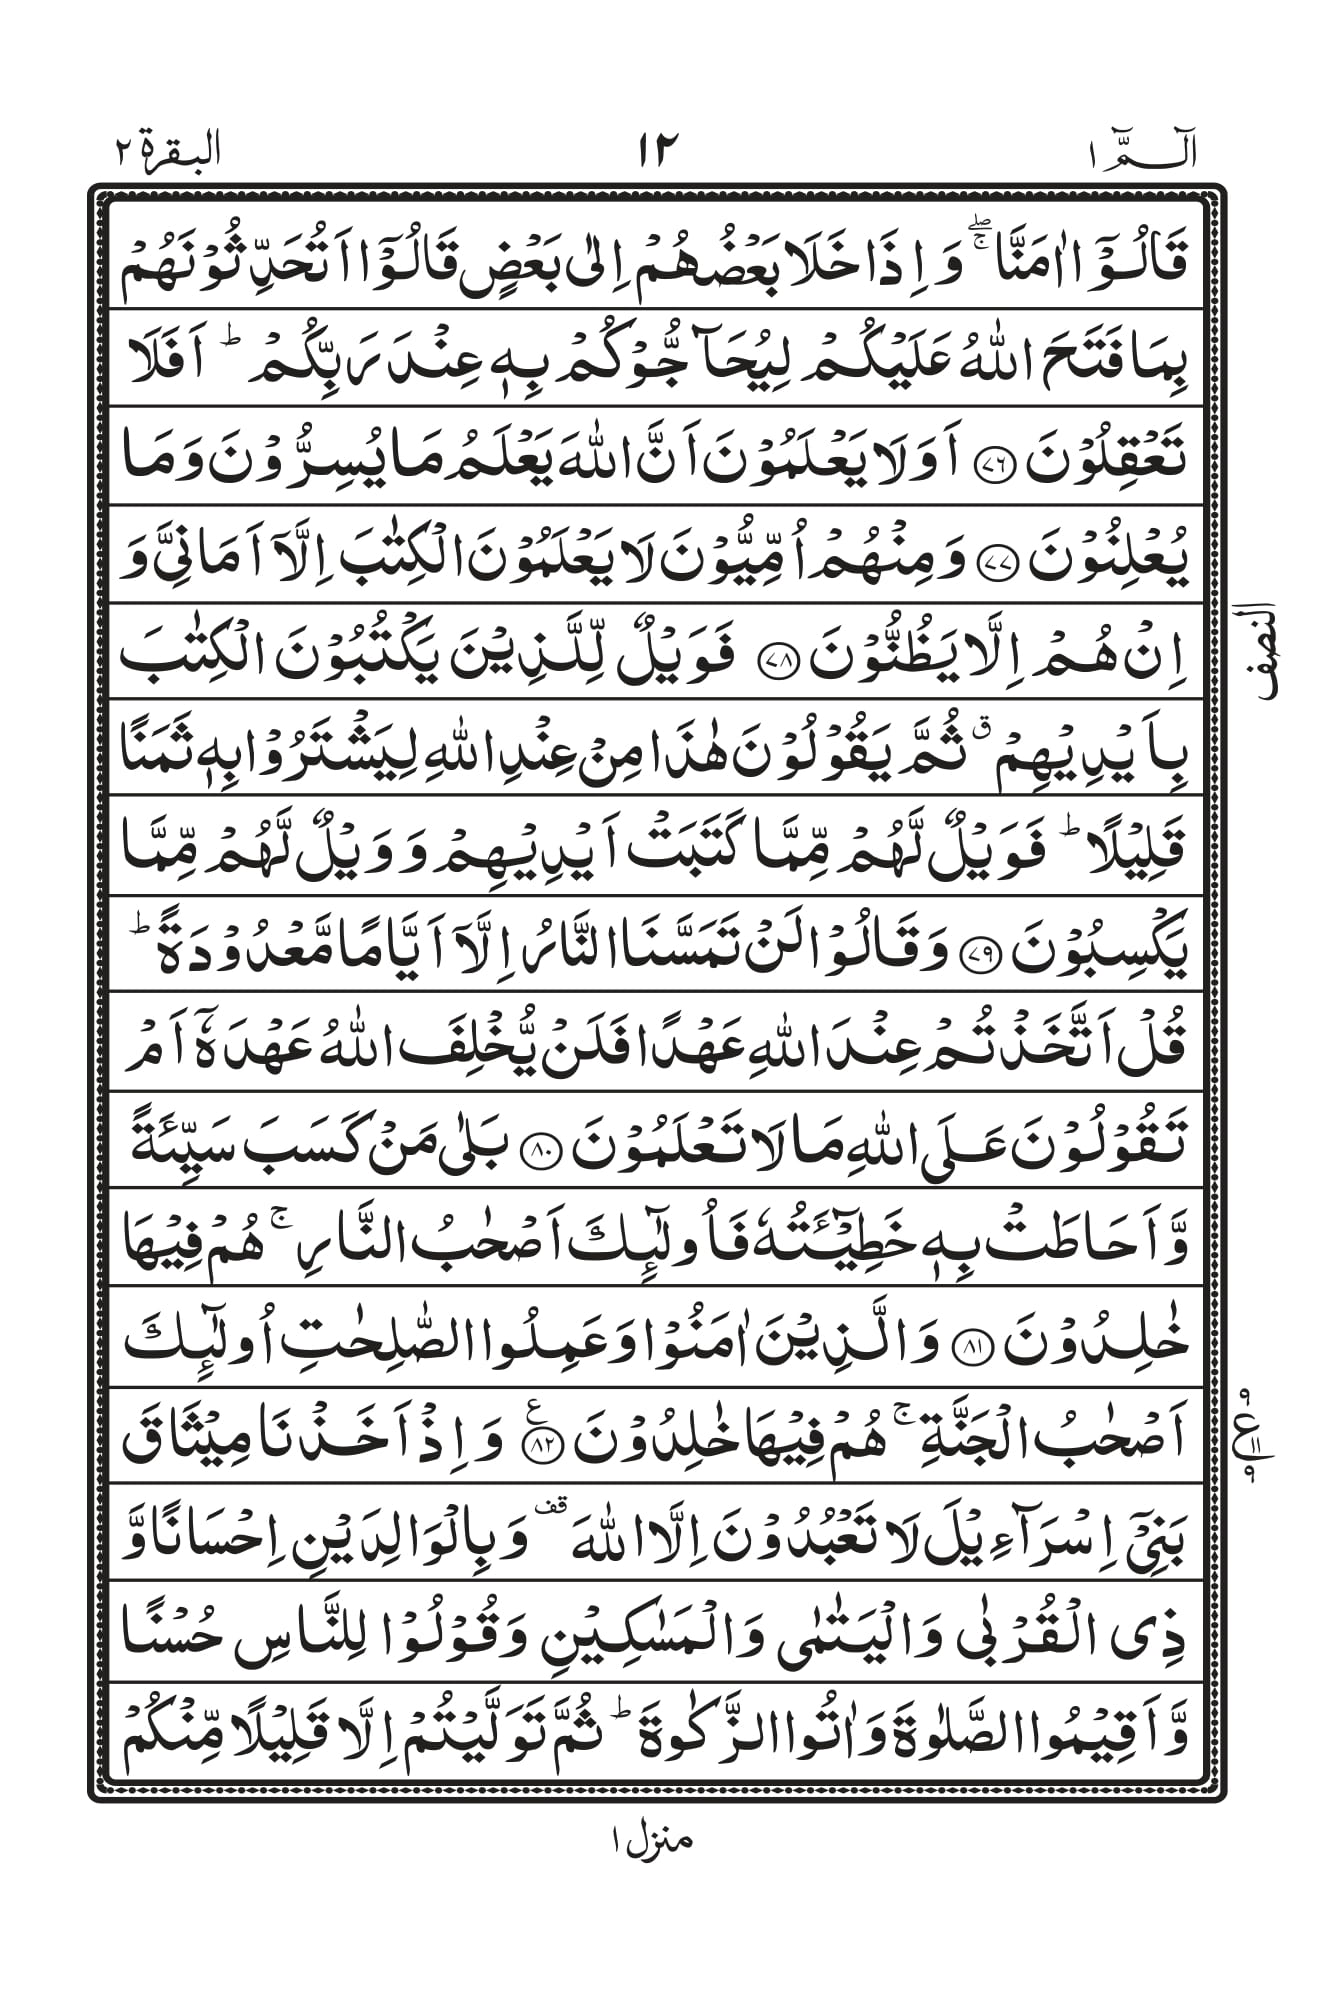 الٓـمّٓ ١
١٢
البقرة ٢
قَالُوْۤا اٰمَنَّا ۖۚ وَ اِذَا خَلَا بَعْضُهُمْ اِلٰى بَعْضٍ قَالُوْۤا اَتُحَدِّثُوْنَهُمْ
بِمَا فَتَحَ اللّٰهُ عَلَیْكُمْ لِیُحَآجُّوْكُمْ بِهٖ عِنْدَ رَبِّكُمْ ؕ اَفَلَا
تَعْقِلُوْنَ ﴿۷۶﴾ اَوَلَا یَعْلَمُوْنَ اَنَّ اللّٰهَ یَعْلَمُ مَا یُسِرُّوْنَ وَمَا
یُعْلِنُوْنَ ﴿۷۷﴾ وَمِنْهُمْ اُمِّیُّوْنَ لَا یَعْلَمُوْنَ الْكِتٰبَ اِلَّاۤ اَمَانِیَّ وَ
اِنْ هُمْ اِلَّا یَظُنُّوْنَ ﴿۷۸﴾ فَوَیْلٌ لِّلَّذِیْنَ یَكْتُبُوْنَ الْكِتٰبَ
النصف
بِاَیْدِیْهِمْ ۗ ثُمَّ یَقُوْلُوْنَ هٰذَا مِنْ عِنْدِ اللّٰهِ لِیَشْتَرُوْا بِهٖ ثَمَنًا
قَلِیْلًا ؕ فَوَیْلٌ لَّهُمْ مِّمَّا كَتَبَتْ اَیْدِیْهِمْ وَ وَیْلٌ لَّهُمْ مِّمَّا
یَكْسِبُوْنَ ﴿۷۹﴾ وَقَالُوْا لَنْ تَمَسَّنَا النَّارُ اِلَّاۤ اَیَّامًا مَّعْدُوْدَةً ؕ
قُلْ اَتَّخَذْتُمْ عِنْدَ اللّٰهِ عَهْدًا فَلَنْ یُّخْلِفَ اللّٰهُ عَهْدَهٗۤ اَمْ
تَقُوْلُوْنَ عَلَى اللّٰهِ مَا لَا تَعْلَمُوْنَ ﴿۸۰﴾ بَلٰى مَنْ كَسَبَ سَیِّئَةً
وَّ اَحَاطَتْ بِهٖ خَطِیْٓـَٔتُهٗ فَاُولٰٓىِٕكَ اَصْحٰبُ النَّارِ ۚ هُمْ فِیْهَا
خٰلِدُوْنَ ﴿۸۱﴾ وَالَّذِیْنَ اٰمَنُوْا وَعَمِلُوا الصّٰلِحٰتِ اُولٰٓىِٕكَ
اَصْحٰبُ الْجَنَّةِ ۚ هُمْ فِیْهَا خٰلِدُوْنَ ﴿۸۲﴾ ع وَ اِذْ اَخَذْنَا مِیْثَاقَ
۹ ع ۱۱ ۹
بَنِیْۤ اِسْرَآءِیْلَ لَا تَعْبُدُوْنَ اِلَّا اللّٰهَ قف وَبِالْوَالِدَیْنِ اِحْسَانًا وَّ
ذِی الْقُرْبٰى وَالْیَتٰمٰى وَالْمَسٰكِیْنِ وَقُوْلُوْا لِلنَّاسِ حُسْنًا
وَّ اَقِیْمُوا الصَّلٰوةَ وَاٰتُوا الزَّكٰوةَ ؕ ثُمَّ تَوَلَّیْتُمْ اِلَّا قَلِیْلًا مِّنْكُمْ
منزل ١